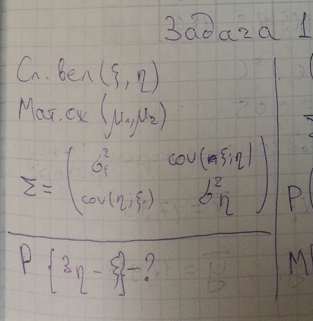 Задача 1
Сл. вел (ξ, η)
Мат. ож (μ₁, μ₂)
Σ = ( σ²ξ cov(ξ;η)
cov(η;ξ) σ²η )
P {3η - ξ} - ?
P(
M